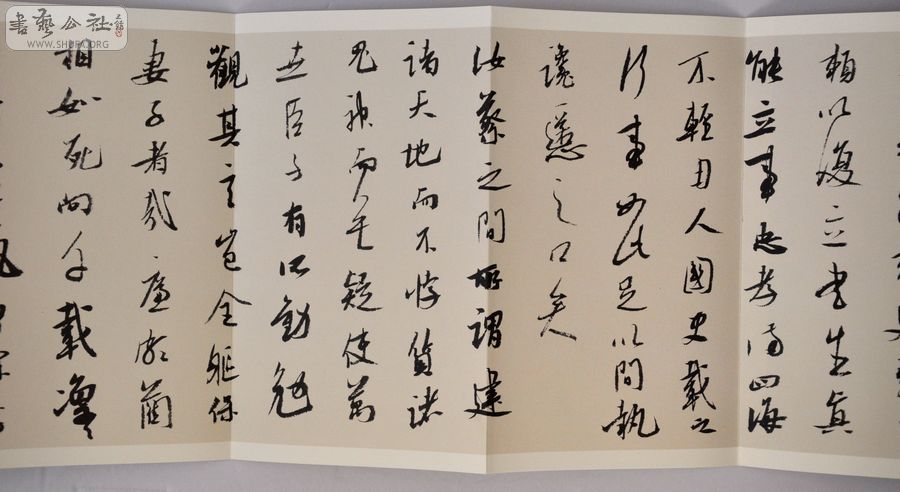 書藝公社
WWW.SHUFA.ORG
賴以復立書生真
能立事忠孝滿四海
不輕用人國史載之
行事如此足以間執
讒慝之口矣
汝蔡之間所謂建
諸天地而不悖質諸
鬼神而無疑使萬
世臣子有所勸勉
觀其言豈全軀保
妻子者哉廉頗藺
相如死向千載凜凜